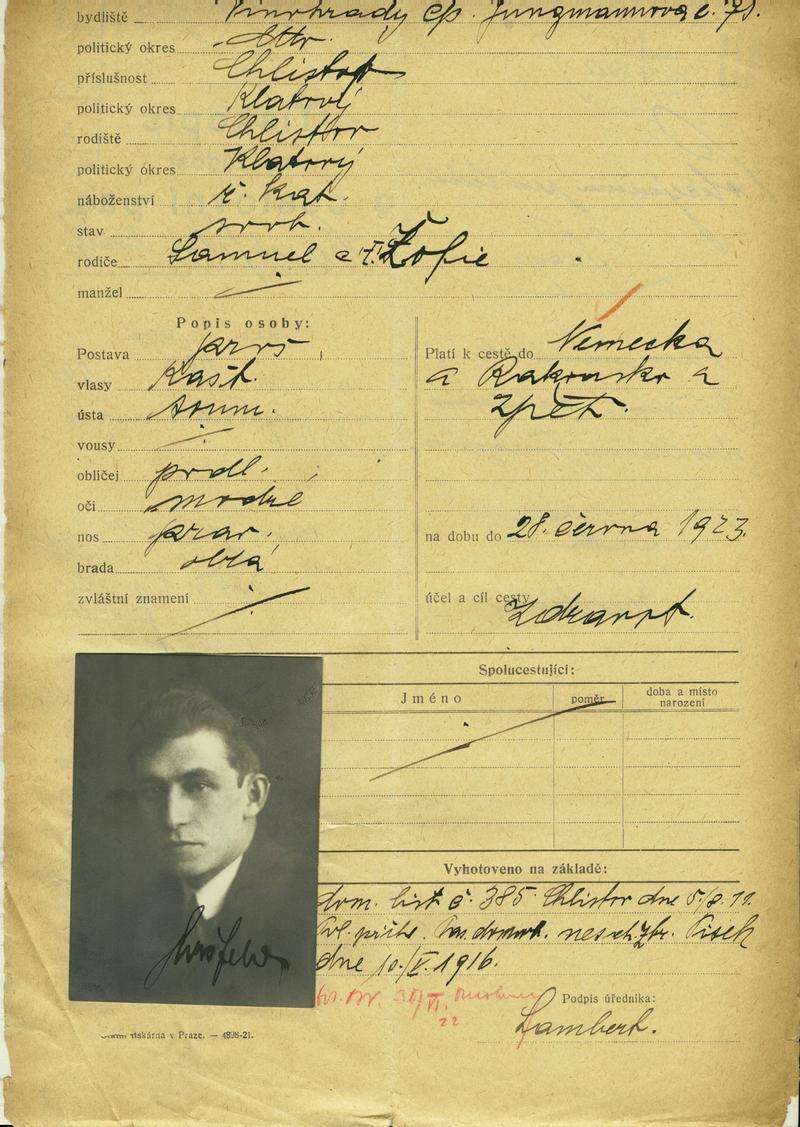 bydliště Vinohrady čp. Jungmannova č. 71.
politický okres dtto.
příslušnost Chlistov
politický okres Klatovy
rodiště Chlistov
politický okres Klatovy
náboženství ř. kat.
stav svob.
rodiče Samuel a Žofie
manžel
Popis osoby:
Postava pros
vlasy kašt.
ústa soum.
vousy
obličej prdl.
oči modré
nos prav.
brada oblá
zvláštní znamení
Platí k cestě do Německa
a Rakouska a
zpět.
na dobu do 28. června 1923.
účel a cíl cesty zdravot.
Spolucestující:
Jméno poměr doba a místo narození
Vyhotoveno na základě:
dom. list č. 385 Chlistov dne 5/8. 11.
Písek
dne 10./V. 1916.
22
Podpis úředníka:
Lambert.
tiskárna v Praze. — 4898-21.